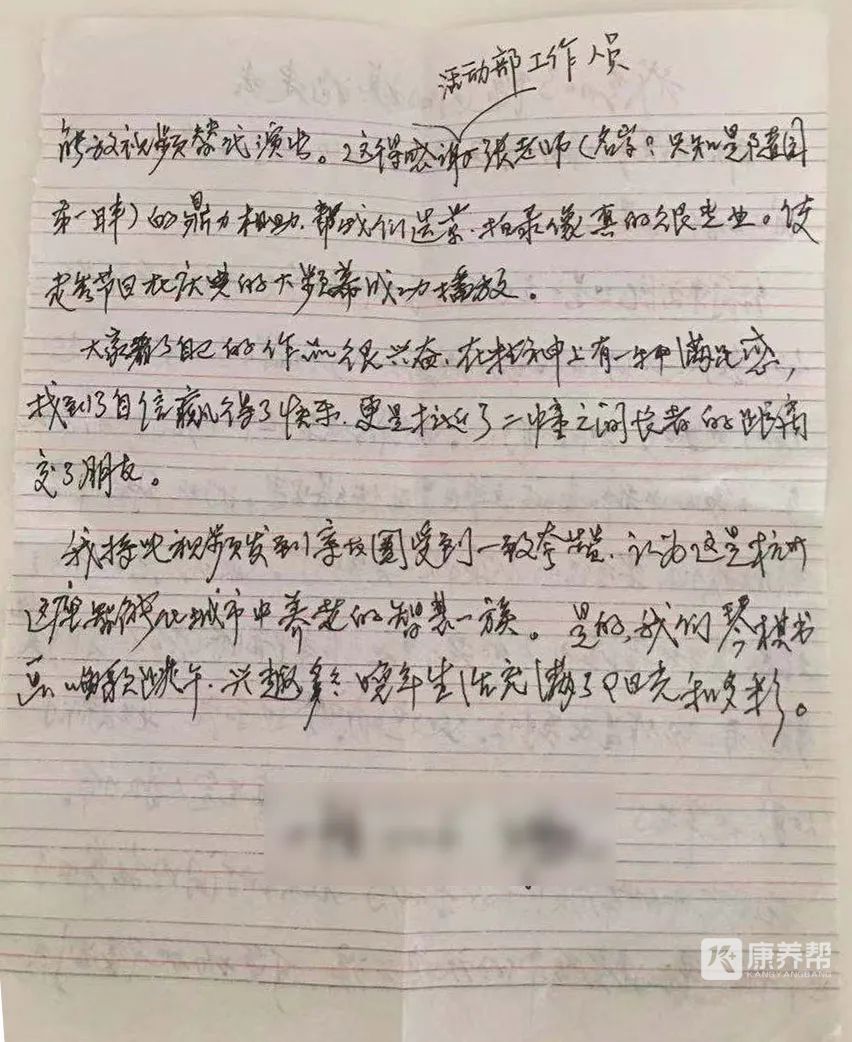 活动部工作人员
能放视频替代演出。这得感谢张老师(名字?只知是陆园
第一排)的鼎力相助,帮我们选景、拍录像真的很专业。使
走秀节目在庆典的大频幕成功播放。
大家看了自己的作品很兴奋、在精神上有一种满足感,
找到了自信赢得了快乐、更是拉近了二幢之间长者的距离
交了朋友。
我将此视频发到亲友圈受到一致夸赞、认为这是杭州
这座智能化城市中养老的智慧一族。是的,我们琴棋书
画、唱歌跳午、兴趣多多晚年生活充满了阳光和多彩。
康养帮
KANGYANGBANG